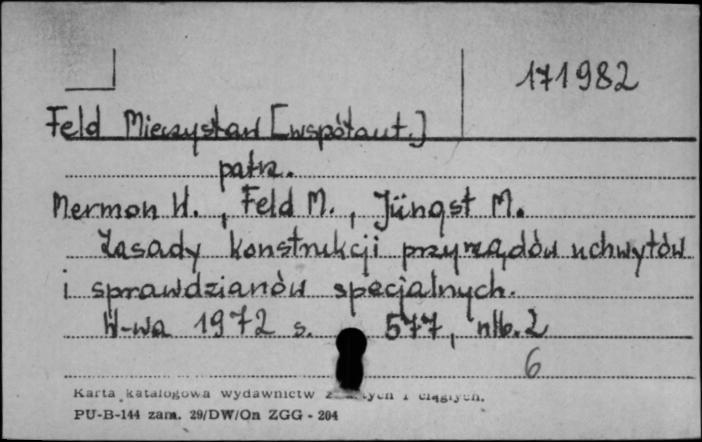 171982
Feld Mieczysław [współaut.]
patrz.
Mermon W., Feld M., Jüngst M.
Zasady konstrukcji przyrządów uchwytów
i sprawdzianów specjalnych.
W-wa 1972 s. 577, nlb. 2
6
Karta katalogowa wydawnictw i ciągłych.
PU-B-144 zam. 29/DW/On ZGG - 204